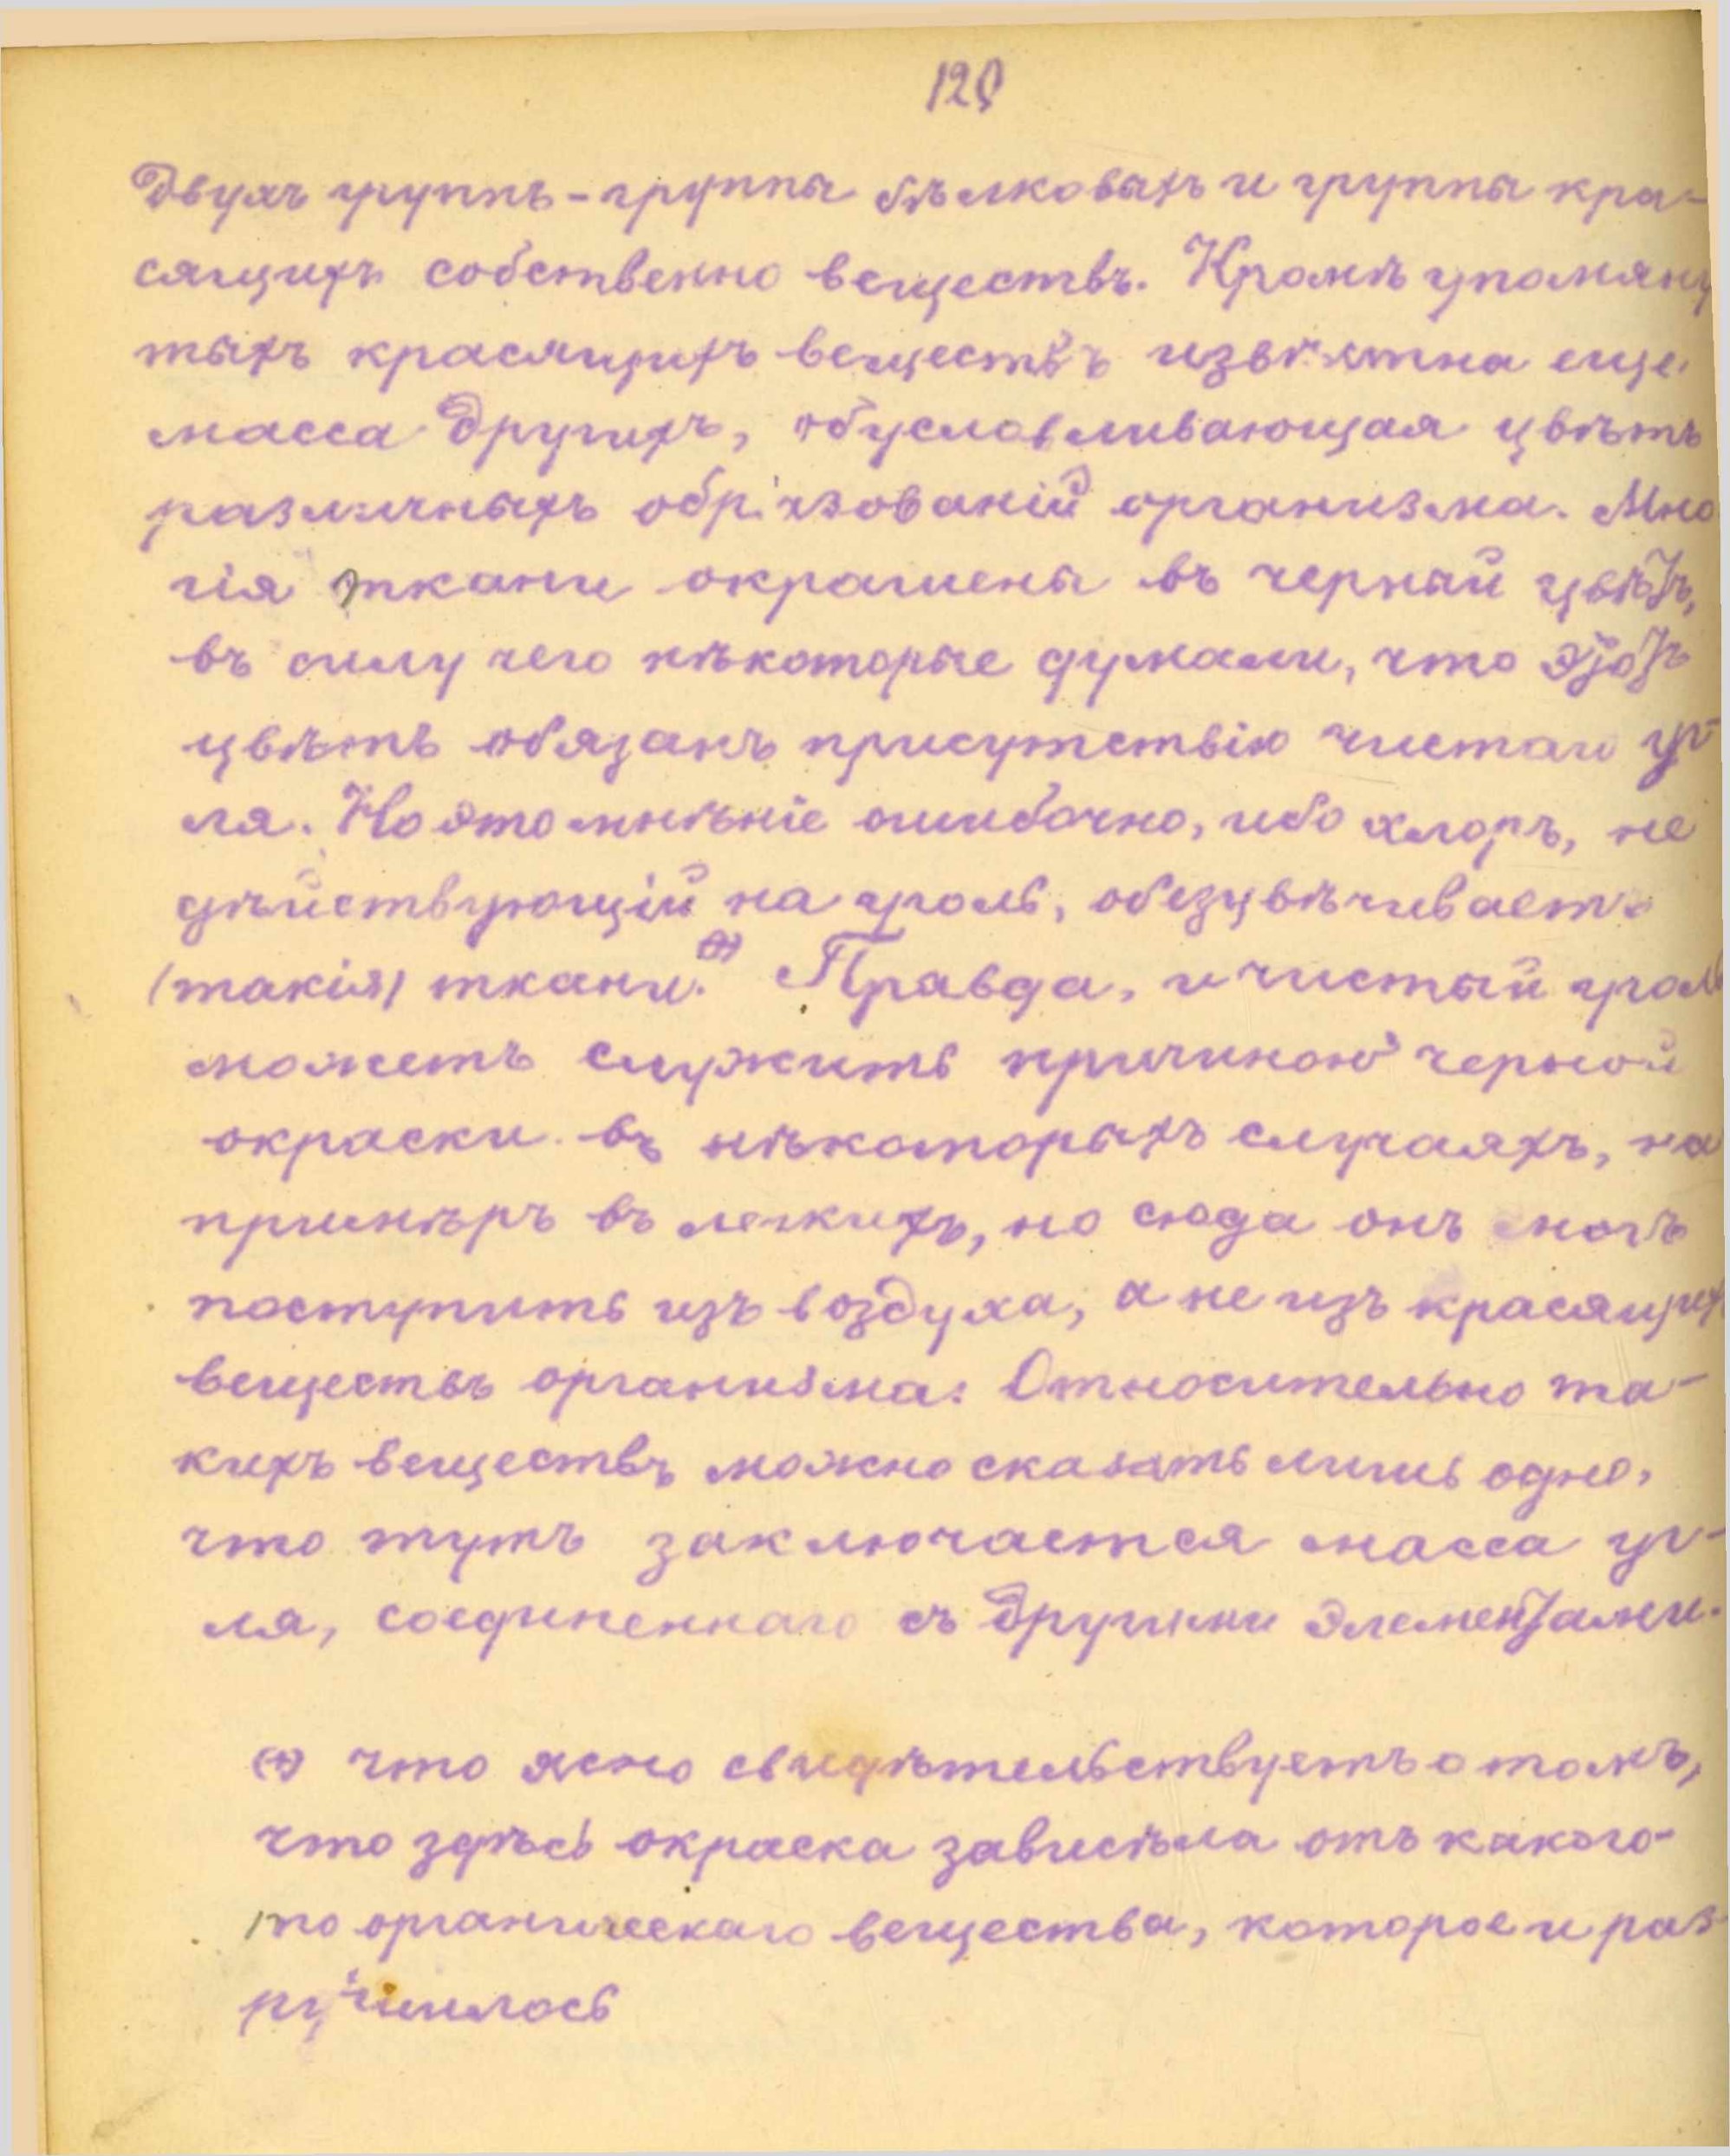 120
Двухъ группъ - группы бѣлковыхъ и группы кра-
сящихъ собственно веществъ. Кромѣ упомяну
тыхъ красящихъ веществъ извѣстна еще
масса другихъ, обусловливающая цвѣтъ
различныхъ образованій организма. Мно
гія ткани окрашены въ черный цвѣтъ,
въ силу чего нѣкоторые думали, что этотъ
цвѣтъ обязанъ присутствію чистаго уг-
ля. Но это мнѣніе ошибочно, ибо хлоръ, не
дѣйствующій на уголь, обезцвѣчиваетъ
(такія) ткани.(+) Правда, и чистый уголь
можетъ служить причиною черной
окраски въ нѣкоторыхъ случаяхъ, на
примѣръ въ легкихъ, но сюда онъ могъ
поступить изъ воздуха, а не изъ красящихъ
веществъ организма. Относительно та-
кихъ веществъ можно сказать лишь одно,
что тутъ заключается масса уг-
ля, соединеннаго съ другими элементами.
(+) что ясно свидѣтельствуетъ о томъ,
что здѣсь окраска зависѣла отъ какого-
то органическаго вещества, которое и раз-
рушилось